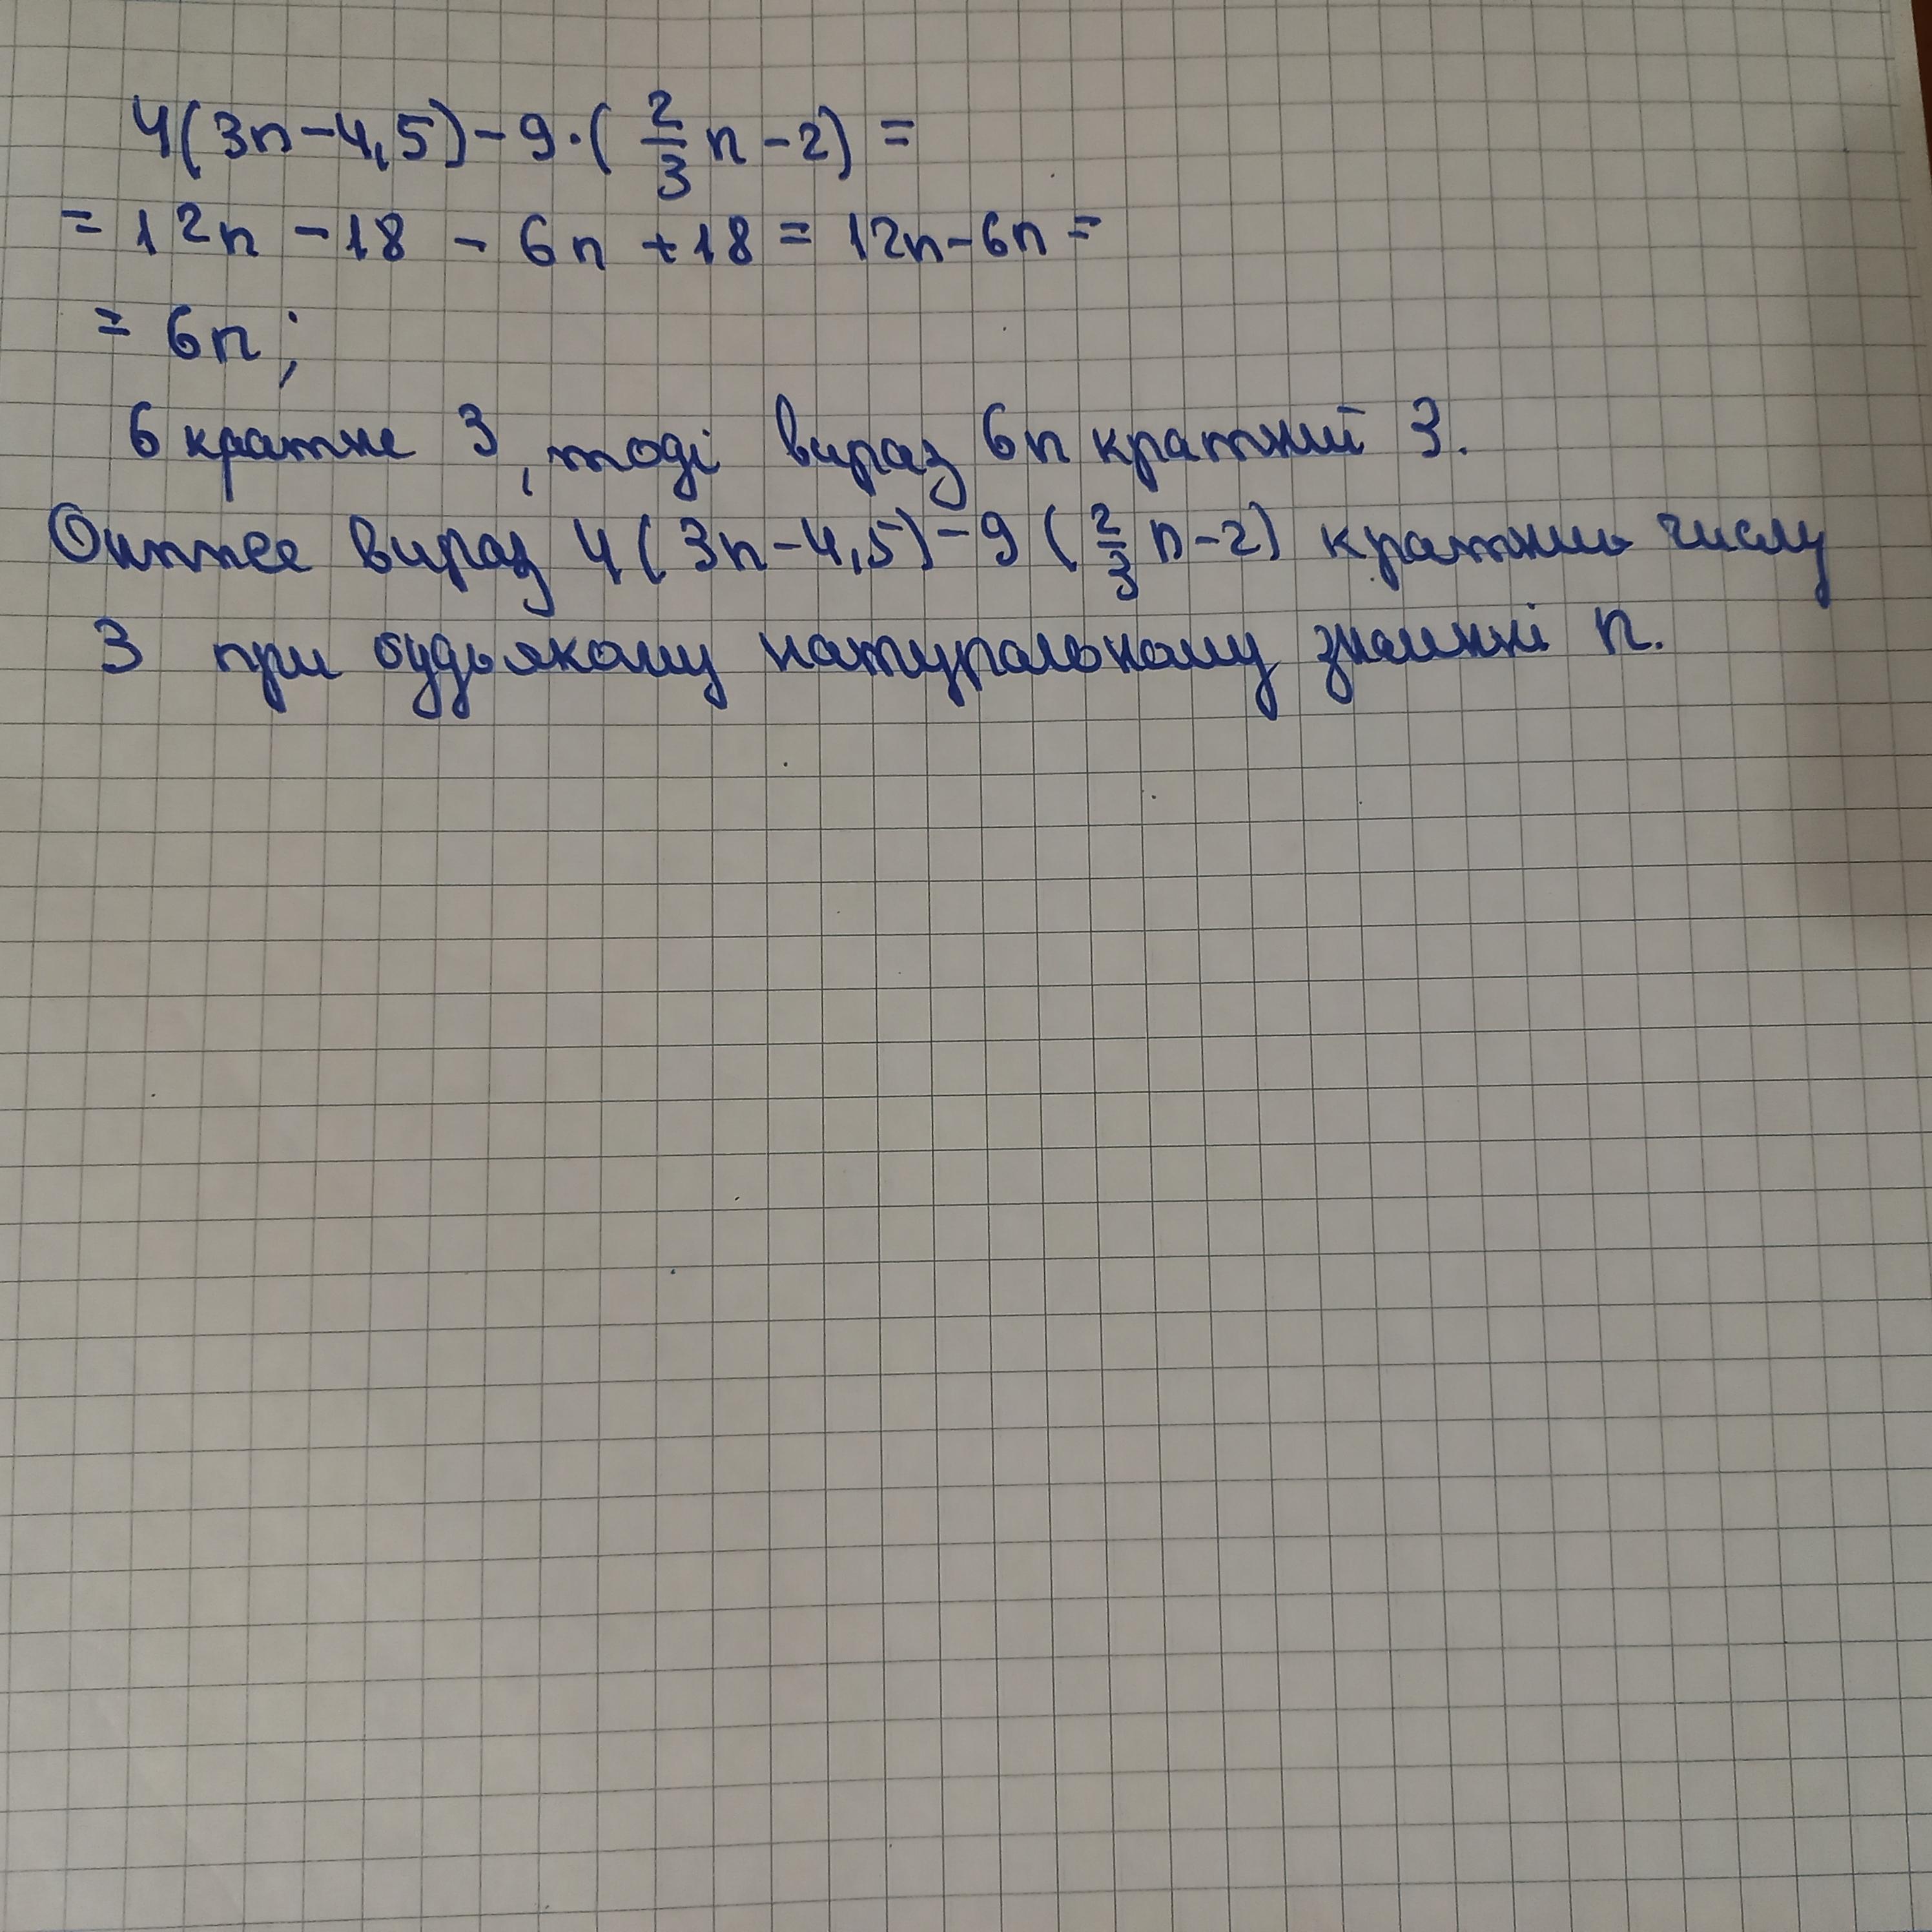 4(3n-4,5)-9·(2/3 n-2)=
=12n-18-6n+18=12n-6n=
=6n;
6 кратне 3, тоді вираз 6n кратний 3.
Отже вираз 4(3n-4,5)-9(2/3 n-2) кратний числу
3 при будьякому натуральному значенні n.